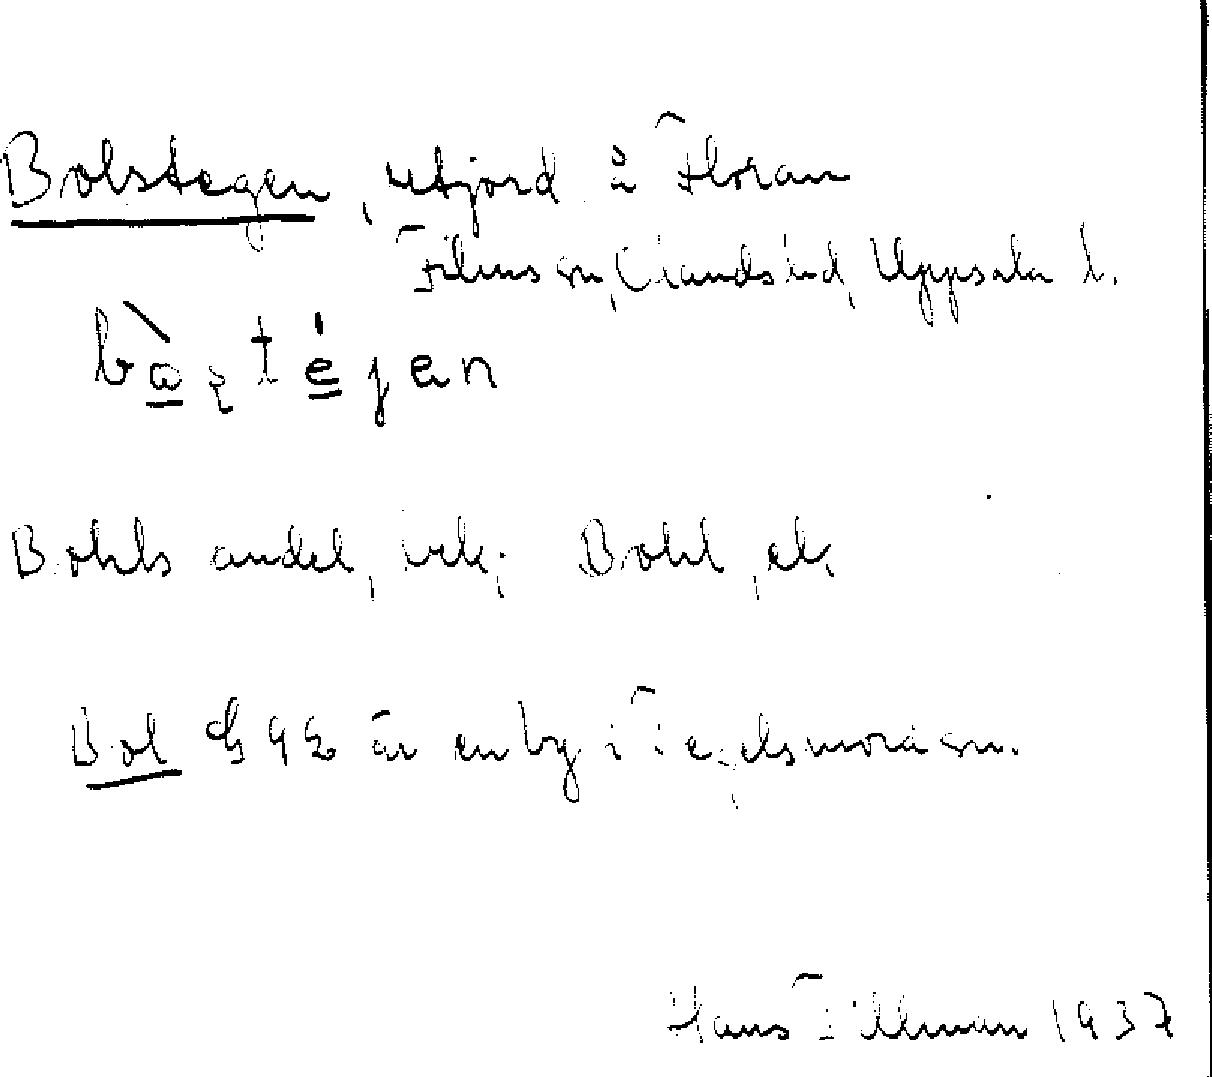 Bolstegen, utjord i Floran
Films sn, Olands hd, Uppsala l.
Bohls andel, urk; Bohl, ek
Bol är en by i Tegelsmora sn.
Hans Tillman 1937